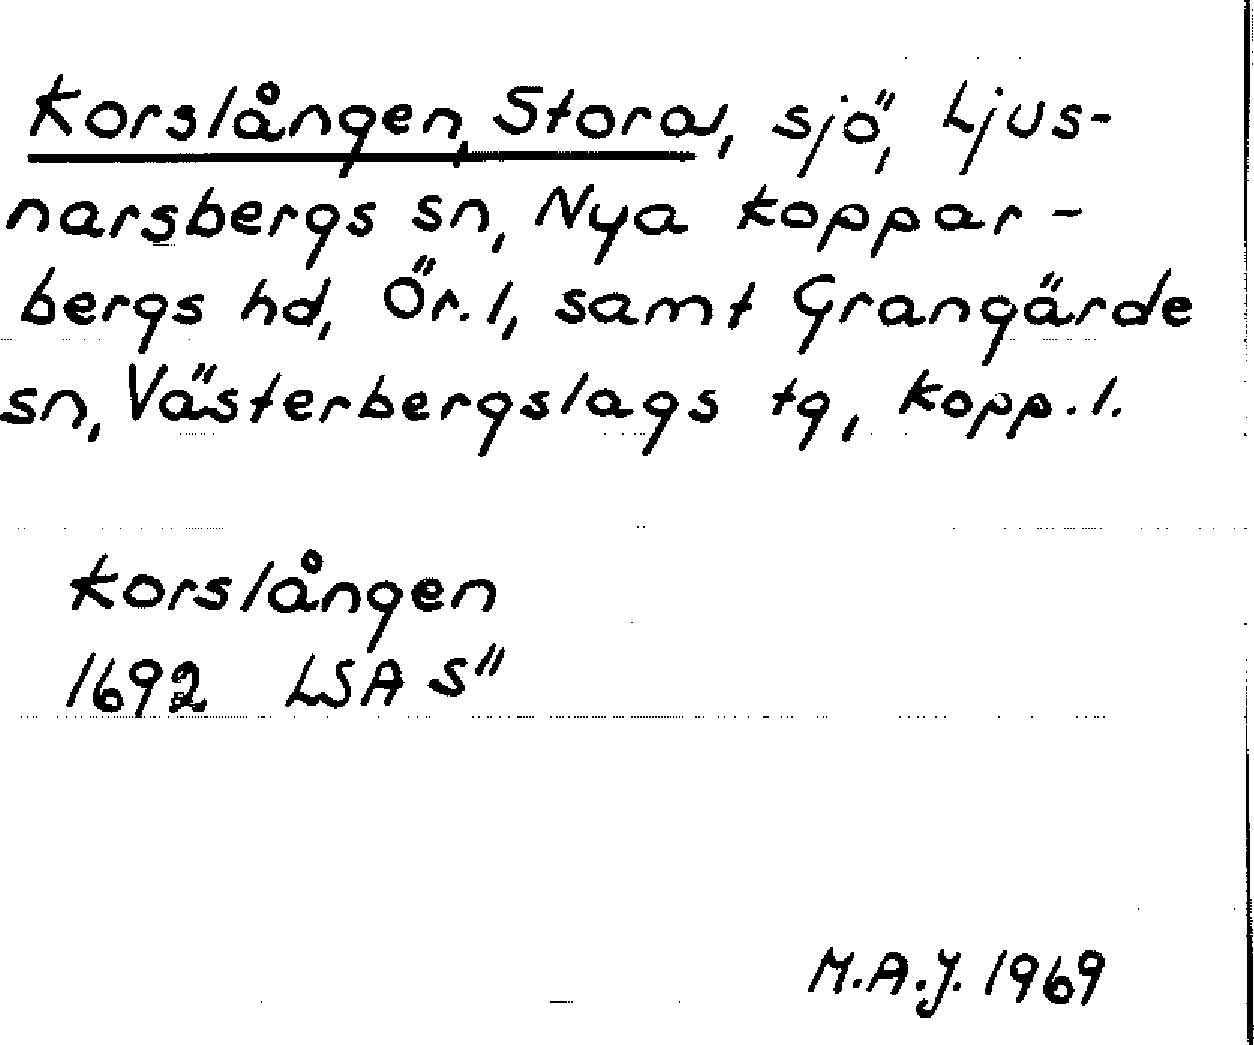 Korslången, Stora, sjö, Ljus-
narsbergs sn, Nya Koppar-
bergs hd, Ör. l, samt Grangärde
sn, Västerbergslags tg, Kopp. l.
Korslången
1692 LSA S"
M.A.J. 1969